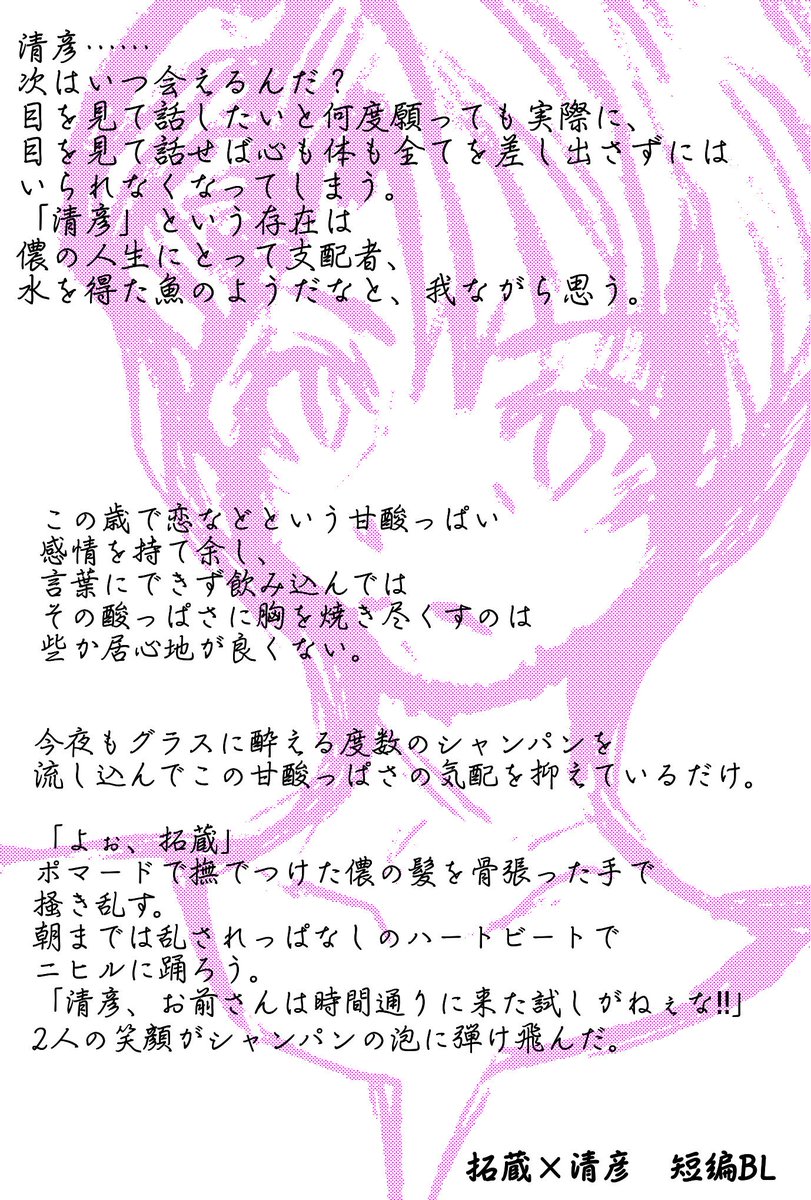 清彦……
次はいつ会えるんだ？
目を見て話したいと何度願っても実際に、
目を見て話せば心も体も全てを差し出さずには
いられなくなってしまう。
「清彦」という存在は
儂の人生にとって支配者、
水を得た魚のようだなと、我ながら思う。
この歳で恋などという甘酸っぱい
感情を持て余し、
言葉にできず飲み込んでは
その酸っぱさに胸を焼き尽くすのは
些か居心地が良くない。
今夜もグラスに酔える度数のシャンパンを
流し込んでこの甘酸っぱさの気配を抑えているだけ。
「よぉ、拓蔵」
ポマードで撫でつけた儂の髪を骨張った手で
掻き乱す。
朝までは乱されっぱなしのハートビートで
ニヒルに踊ろう。
「清彦、お前さんは時間通りに来た試しがねぇな!!」
2人の笑顔がシャンパンの泡に弾け飛んだ。
拓蔵×清彦　短編BL